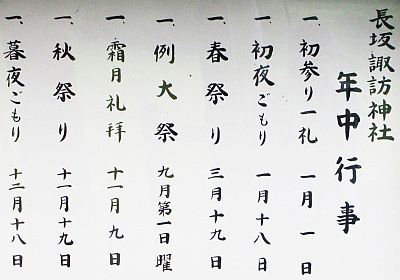 長坂諏訪神社
年中行事
一、初参り一礼 一月一日
一、初夜ごもり 一月十八日
一、春祭り 三月十九日
一、例大祭 九月第一日曜
一、霜月礼拝 十一月九日
一、秋祭り 十一月十九日
一、暮夜ごもり 十二月十八日